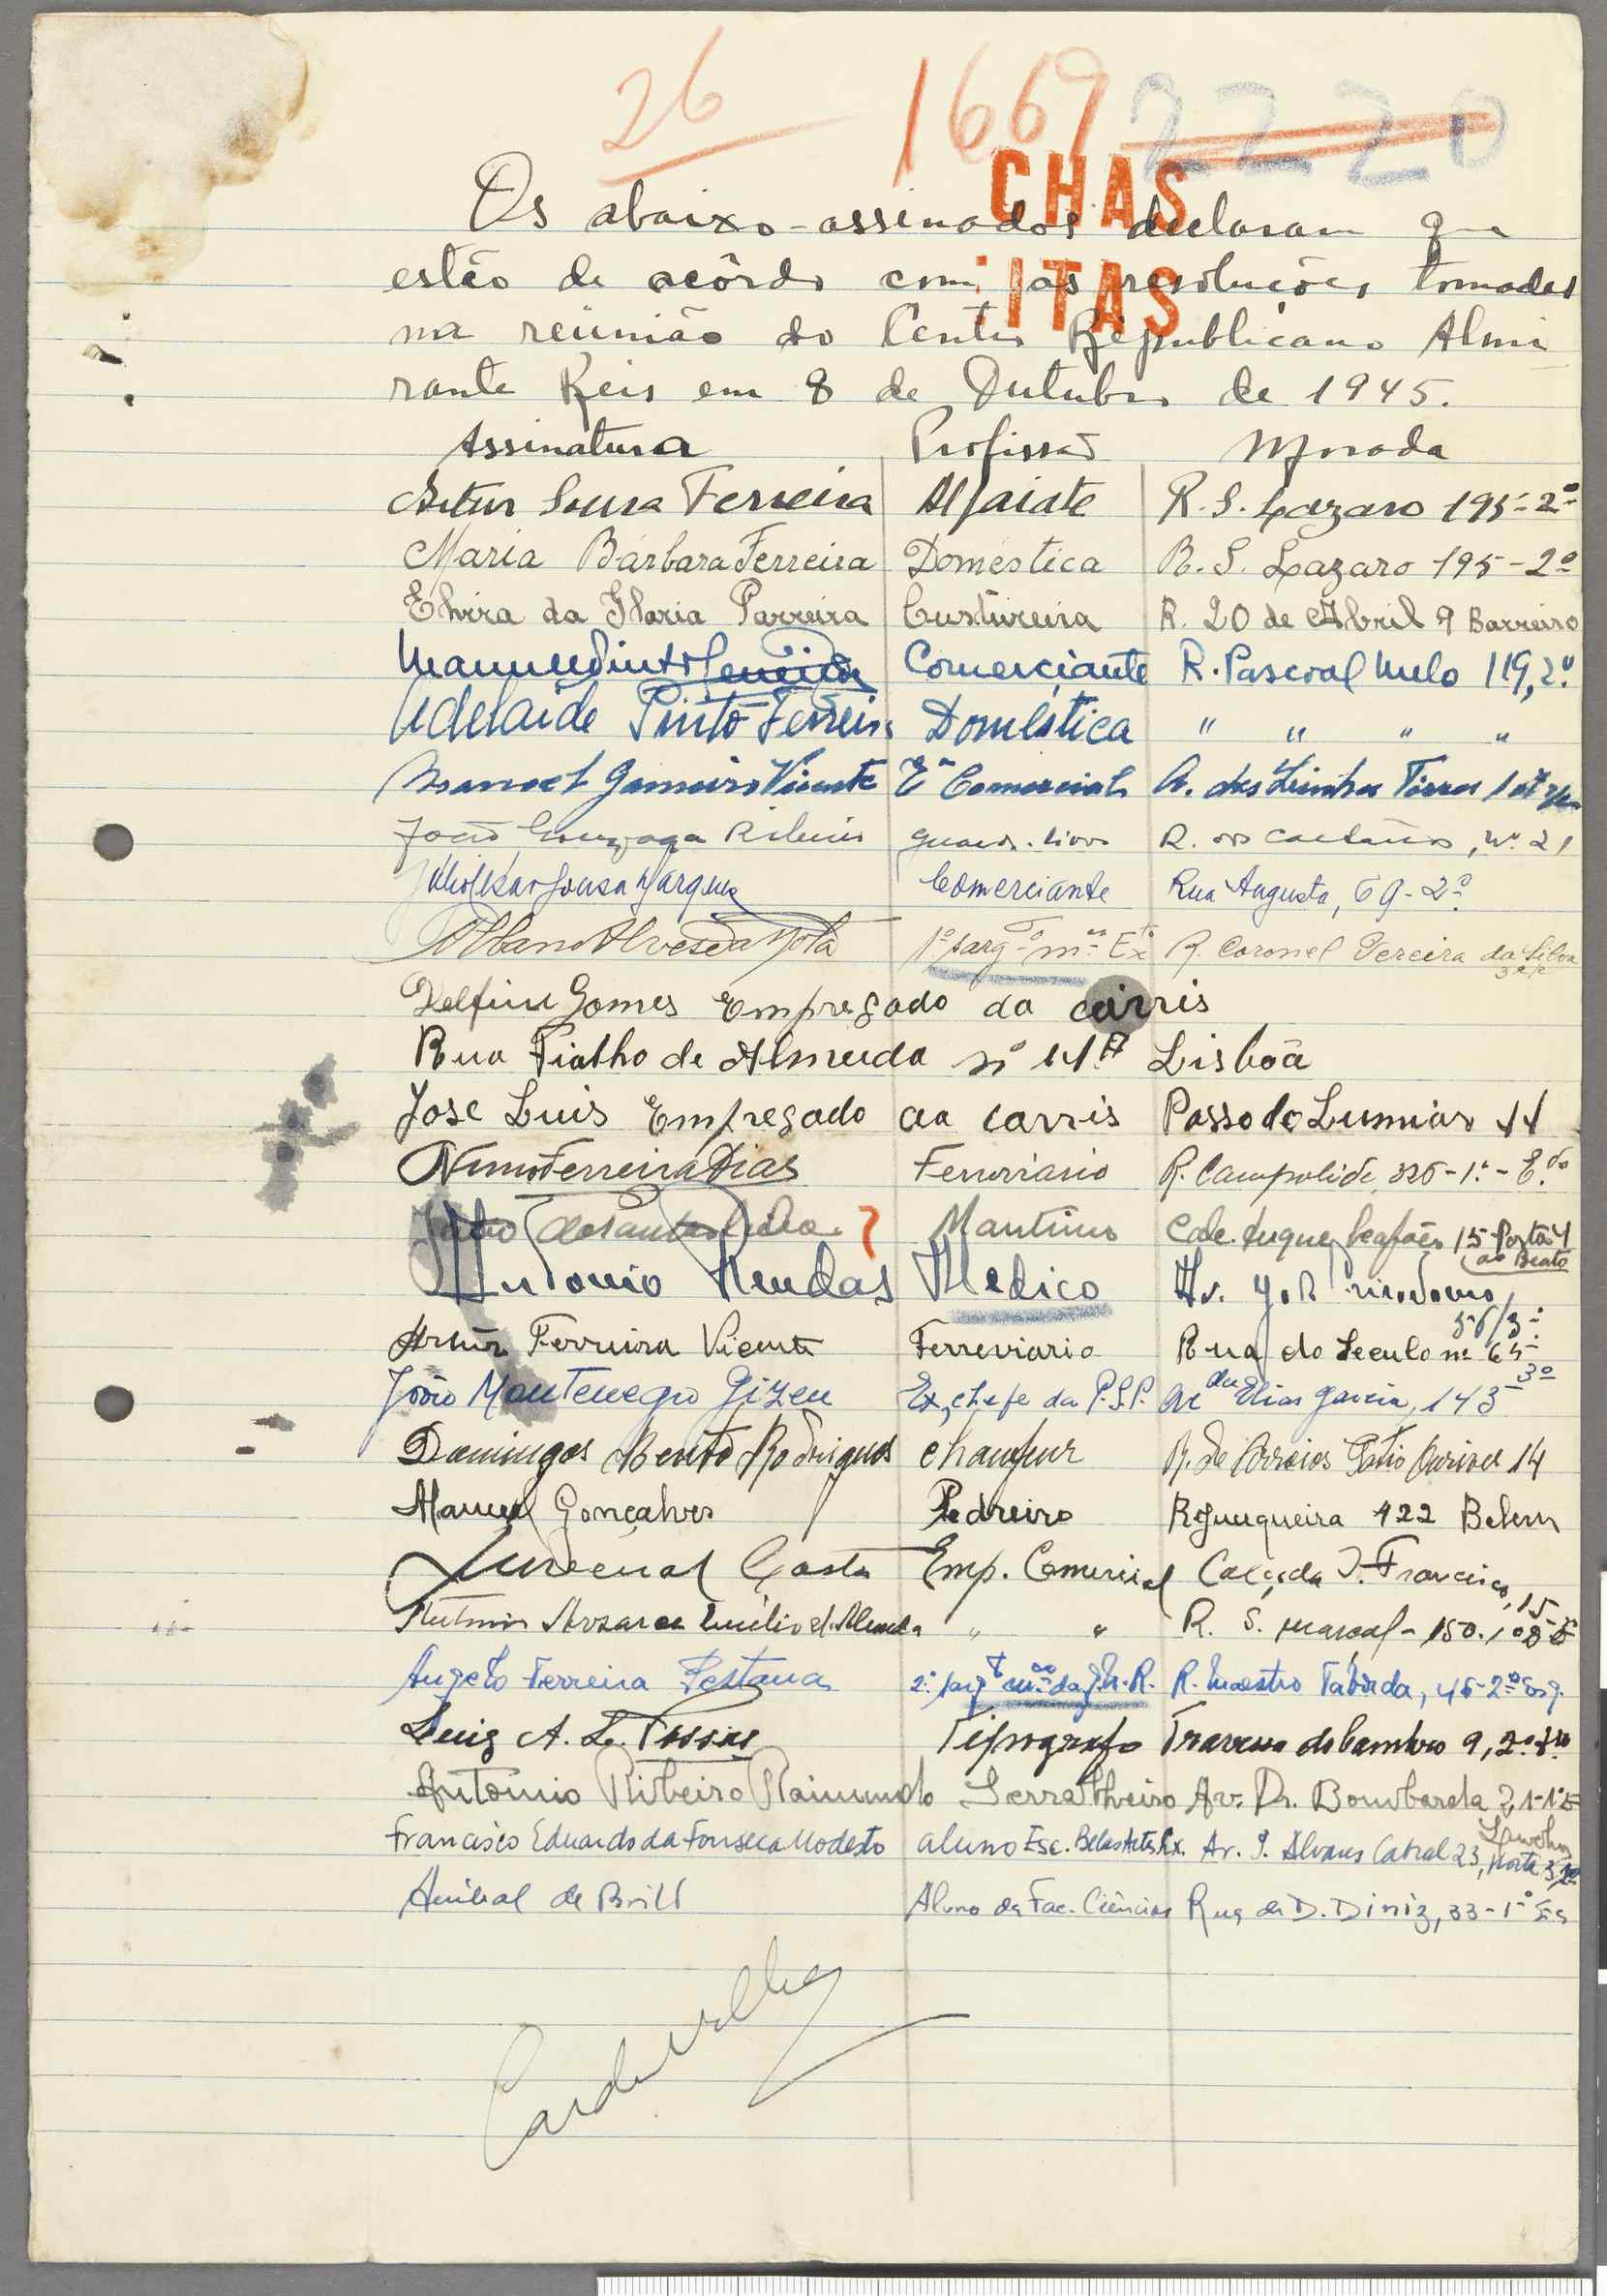 26 1669 2220
CHAS
ITAS
Os abaixo-assinados declaram que
estão de acôrdo com as resoluções tomadas
na reünião do Centro Republicano Almi
rante Reis em 8 de Outubro de 1945.
Assinatura Profissão Morada
Artur Sousa Ferreira Alfaiate R. S. Lazaro 195-2º
Maria Bárbara Ferreira Doméstica R. S. Lazaro 195-2º
Elvira da Gloria Parreira Custureira R. 20 de Abril 9 Barreiro
Manuel Pinto Ferreira Comerciante R. Pascoal Melo 119, 2º
Adelaide Pinto Ferreira Doméstica " " " "
Manoel Gameiro Vicente Eº Comercial A. das Linhas Torres
João Gonzaga Ribeiro guarda-livros R. dos Caetanos, nº 21
Julio Cesar Sousa Marques Comerciante Rua Augusta, 69-2º
Albano Alves da Mota 1º sargto mco Exto R. Coronel Pereira da Silva
Delfim Gomes Empregado da carris
Rua Fialho de Almeida nº Lisbôa
Jose Luis Empregado da carris Passo do Lumiar 11
Nuno Ferreira Dias Ferroviario R. Campolide, 326-1º-E.do
João dos Santos ? Maritimo Calc. Duque Lafões 15 Porta 4
ao Beato
Antonio Mendas Medico Av.
56/3º
Artur Ferreira Vicente Ferreviario Rua do Seculo nº 65
3º
João Montenegro Gizen Ex. chefe da P.S.P. Av da Elias Garcia, 143
Domingos Bento Rodrigues chaufeur R. de Arroios Patio Ourives 14
Manuel Gonçalves Pedreiro R Junqueira 422 Belem
Juvenal Costa Emp. Comercial Calçada S. Francisco, 15
Antonio d'Almeida " " R. S. Marçal - 150. 1º
Angelo Ferreira Pestana 2º sargt mco da G.N.R. R. Maestro Taborda, 46-2º Esq.
Luiz A. L. Tipografo Travessa do Cambro 9, 2º
António Ribeiro Raimundo Serralheiro Av. Dr. Bombarda 21-1º
Francisco Eduardo da Fonseca Modesto aluno Esc. Belas Artes Lx. Av. P. Alvares Cabral 23, Porta 3
Anibal de Brill Aluno da Fac. Ciências Rua de D. Diniz, 33-1º Es